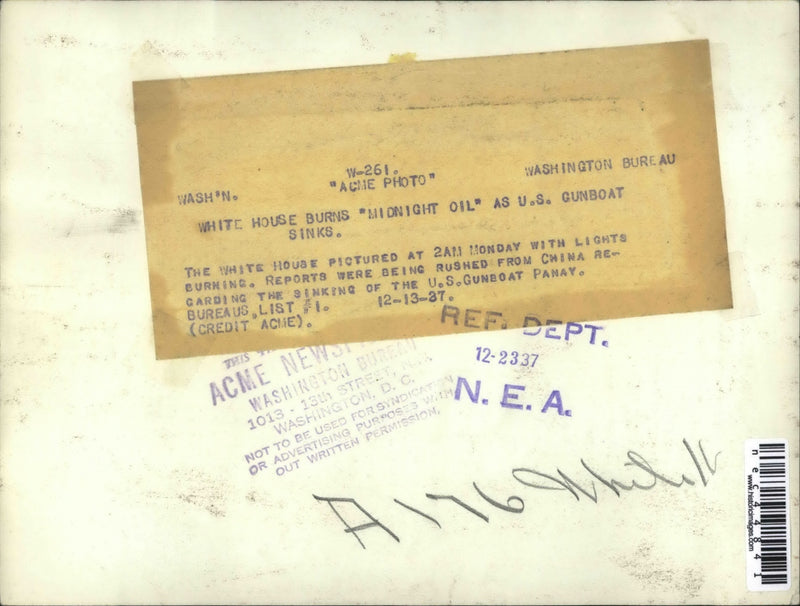 W-261.
"ACME PHOTO"
WASHINGTON BUREAU
WASH'N.
WHITE HOUSE BURNS "MIDNIGHT OIL" AS U.S. GUNBOAT
SINKS.
THE WHITE HOUSE PICTURED AT 2AM MONDAY WITH LIGHTS
BURNING. REPORTS WERE BEING RUSHED FROM CHINA RE-
GARDING THE SINKING OF THE U.S.GUNBOAT PANAY.
BUREAUS, LIST #1. 12-13-37.
(CREDIT ACME).
REF. DEPT.
12-2337
N. E. A.
THIS
ACME NEWS
WASHINGTON BUREAU
1013 - 13th STREET, N.W.
WASHINGTON, D. C.
NOT TO BE USED FOR SYNDICATION
OR ADVERTISING PURPOSES WITH
OUT WRITTEN PERMISSION.
A 176
nec44841
www.historicimages.com